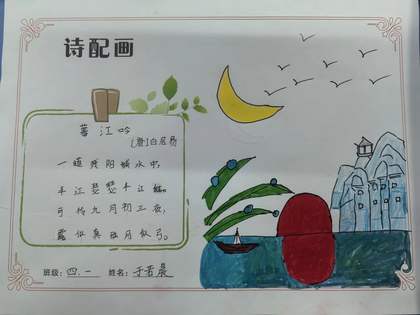 诗配画
暮江吟
[唐]白居易
一道残阳铺水中,
半江瑟瑟半江红。
可怜九月初三夜,
露似真珠月似弓。
班级:四.一 姓名:于若晨